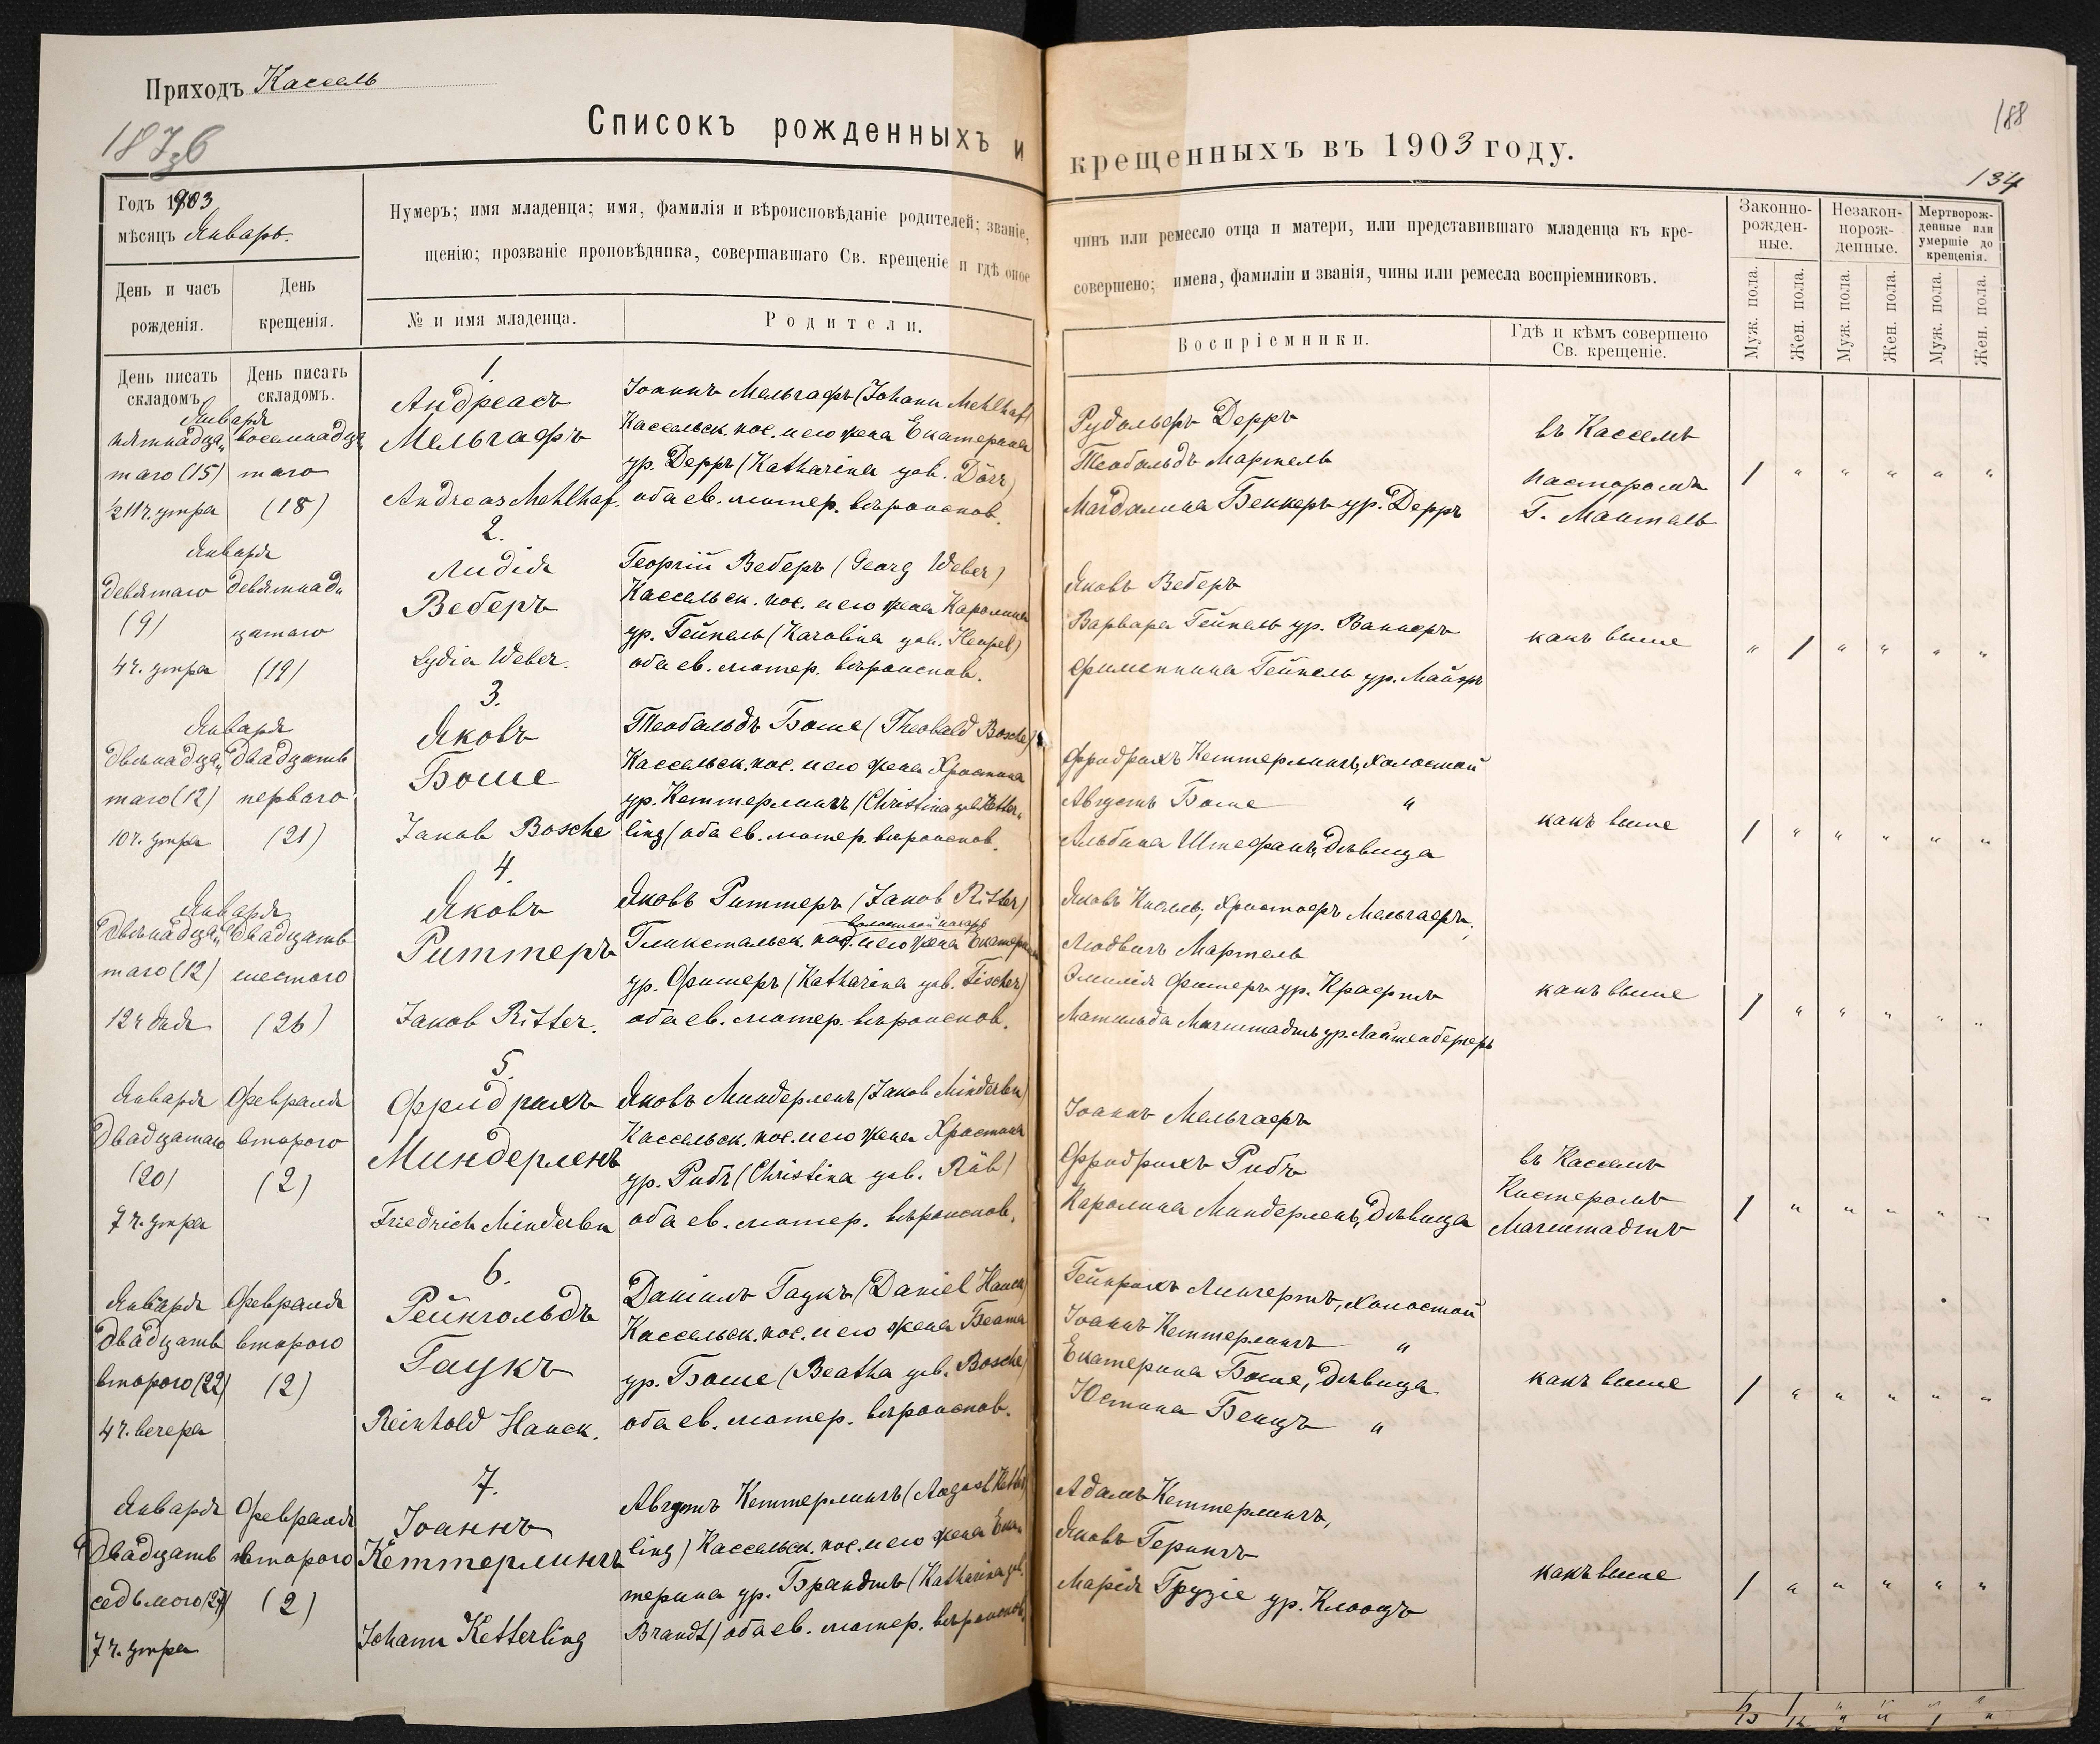 Приходъ Кассель
187зб
Списокъ рожденныхъ и крещенныхъ въ 1903 году.
188
134
Годъ 1903
мѣсяцъ Январь.
Нумеръ; имя младенца; имя, фамилія и вѣроисповѣданіе родителей; званіе, чинъ или ремесло отца и матери, или представившаго младенца къ кре-
щенію; прозваніе проповѣдника, совершавшаго Св. крещеніе и гдѣ оное совершено; имена, фамиліи и званія, чины или ремесла воспріемниковъ.
День и часъ рожденія.
День крещенія.
№ и имя младенца.
Родители.
Воспріемники.
Гдѣ и кѣмъ совершено Св. крещеніе.
Законно-рожден-ные.
Незакон-норож-денные.
Мертворож-денные или умершіе до крещенія.
Муж. пола.
Жен. пола.
Муж. пола.
Жен. пола.
Муж. пола.
Жен. пола.
День писать складомъ.
День писать складомъ.
Января
пятнадца„
таго (15)
½11 ч. утра
восемнадца„
таго
(18)
1.
Андреасъ
Мельгафъ
Andreas Mehlhaf.
Іоаннъ Мельгафъ (Johann Mehlhaf)
Кассельск. пос. и его жена Екатерина
ур. Дерръ (Katharina geb. Dörr)
оба ев. лютер. вѣроиспов.
Рудольфъ Дерръ
Теобальдъ Мартель
Магдалина Беккеръ ур. Дерръ
въ Касселѣ
пасторомъ
Г. Мантель
1 " " " " "
Января
девятаго
(9)
4 ч. утра
девятнад„
цатаго
(19)
2.
Лидія
Веберъ
Lydia Weber.
Георгій Веберъ (Georg Weber)
Кассельск. пос. и его жена Каролина
ур. Гейпель (Karolina geb. Heupel)
оба ев. лютер. вѣроиспов.
Яковъ Веберъ
Варвара Гейпель ур. Ваннеръ
Филиппина Гейпель ур. Майеръ
какъ выше
" 1 " " " "
Января
двѣнадца„
таго (12)
10 ч. утра
двадцать
перваго
(21)
3.
Яковъ
Боше
Jakob Bosche
Теобальдъ Боше (Theobald Bosche)
Кассельск. пос. и его жена Христина
ур. Кеттерлингъ (Christina geb. Ketter„
ling) оба ев. лютер. вѣроиспов.
Фридрихъ Кеттерлингъ, холостой
Августъ Боше "
Альбина Штефанъ, дѣвица
какъ выше
1 " " " " "
Января
двѣнадца„
таго (12)
12 ч. дня
двадцать
шестого
(26)
4.
Яковъ
Риттеръ
Jakob Ritter.
Яковъ Риттеръ (Jakob Ritter)
волостной писарь
Гликстальск. пос. и его жена Екатерина
ур. Фишеръ (Katharina geb. Fischer)
оба ев. лютер. вѣроиспов.
Яковъ Христофъ Мельгафъ,
Людвигъ Мартель
Эмилія Фишеръ ур. Крафтъ
Матильда Магштадтъ ур.
какъ выше
1 " " " " "
Января
двадцатаго
(20)
7 ч. утра
Февраля
второго
(2)
5.
Фридрихъ
Миндерленъ
Friedrich Minderlen
Яковъ Миндерленъ (Jakob Minderlen)
Кассельск. пос. и его жена Христина
ур. Рибъ (Christina geb. Rüb)
оба ев. лютер. вѣроиспов.
Іоаннъ Мельгафъ
Фридрихъ Рибъ
Каролина Миндерленъ, дѣвица
въ Касселѣ
Кистеромъ
Магштадтъ
1 " " " " "
Января
двадцать
второго (22)
4 ч. вечера
Февраля
второго
(2)
6.
Рейнгольдъ
Гаукъ
Reinhold Hauck.
Даніилъ Гаукъ (Daniel Hauck)
Кассельск. пос. и его жена Беата
ур. Боше (Beatha geb. Bosche)
оба ев. лютер. вѣроиспов.
Гейнрихъ Липгертъ, холостой
Іоаннъ Кеттерлингъ "
Екатерина Боше, дѣвица
Юстина Бенцъ "
какъ выше
1 " " " " "
Января
двадцать
седьмого (27)
7 ч. утра
Февраля
второго
(2)
7.
Іоаннъ
Кеттерлингъ
Johann Ketterling
Августъ Кеттерлингъ (August Ketter
ling) Кассельск. пос. и его жена Ека„
терина ур. Брандтъ (Katharina geb.
Brandt) оба ев. лютер. вѣроиспов.
Адамъ Кеттерлингъ,
Яковъ Герингъ
Марія Грузіе ур. Клооцъ
какъ выше
1 " " " " "